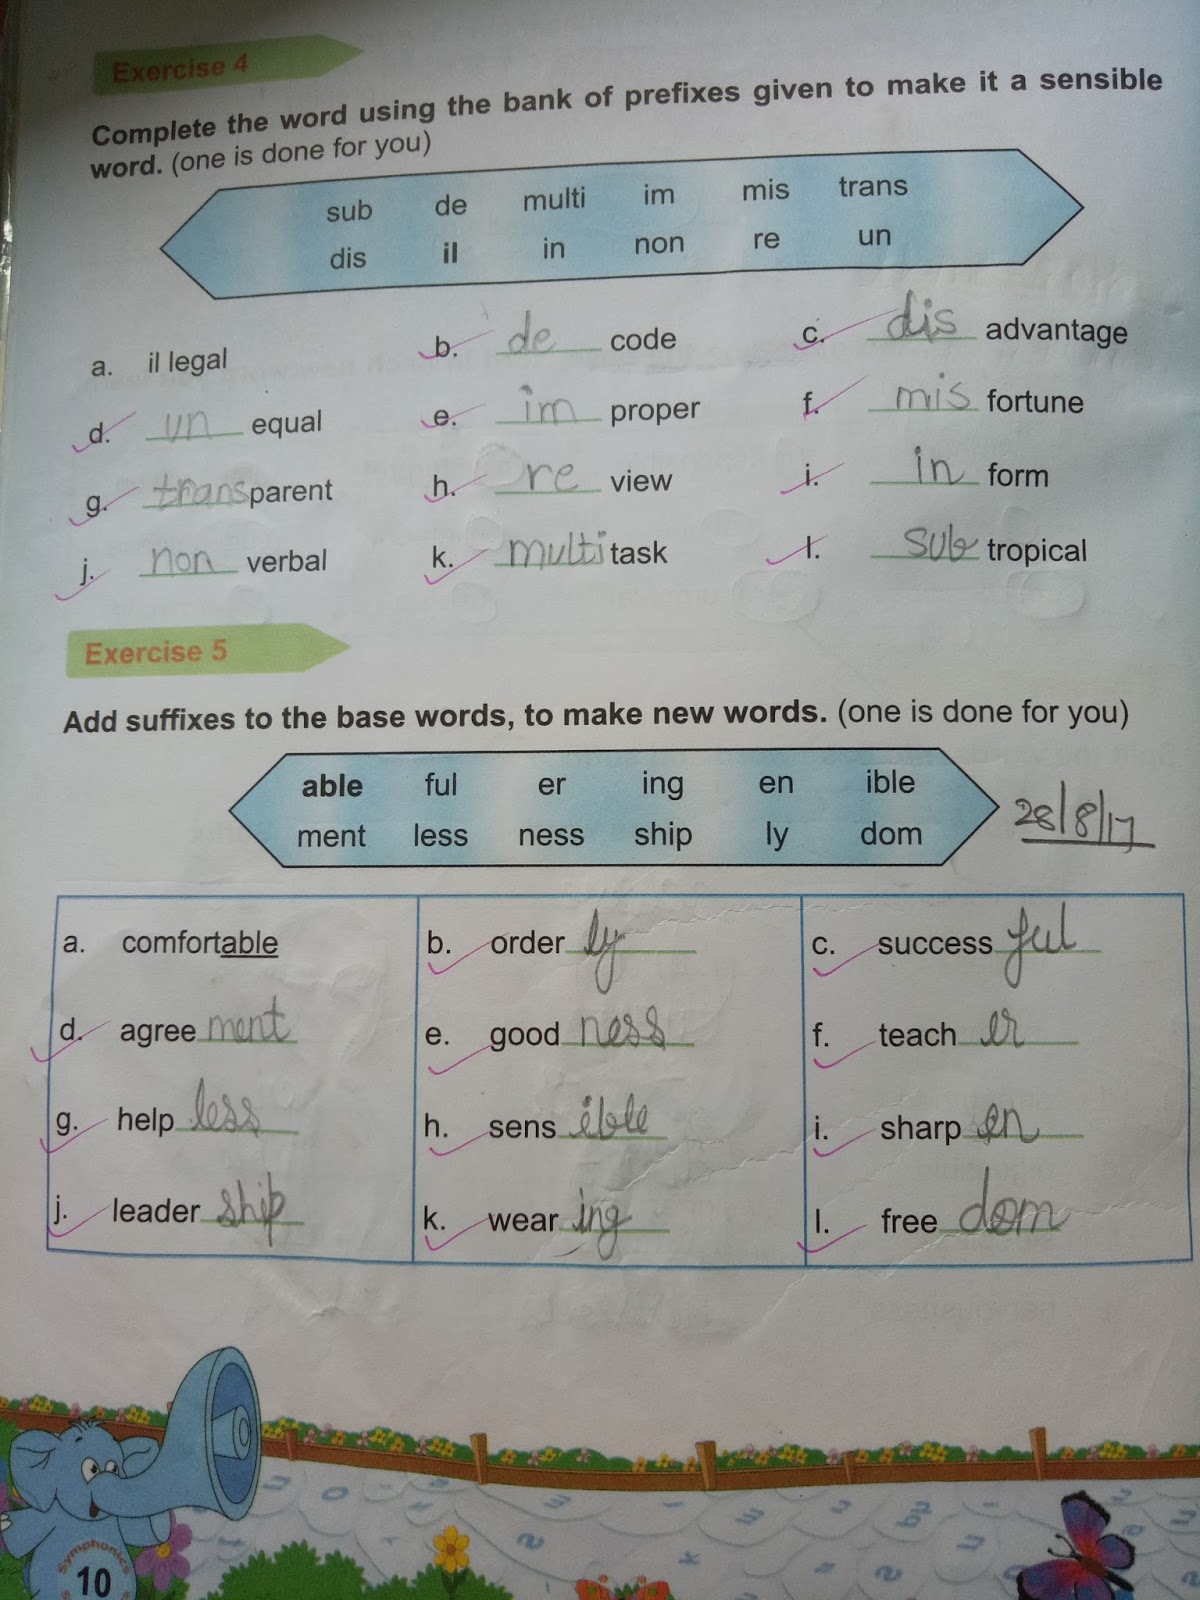 Exercise 4
Complete the word using the bank of prefixes given to make it a sensible
word. (one is done for you)
sub de multi im mis trans
dis il in non re un
a. il legal b. de code c. dis advantage
d. un equal e. im proper f. mis fortune
g. trans parent h. re view i. in form
j. non verbal k. multi task l. sub tropical
Exercise 5
Add suffixes to the base words, to make new words. (one is done for you)
able ful er ing en ible
ment less ness ship ly dom
28/8/17
a. comfortable b. order ly c. success ful
d. agree ment e. good ness f. teach er
g. help less h. sens ible i. sharp en
j. leader ship k. wear ing l. free dom
Symphonics
10